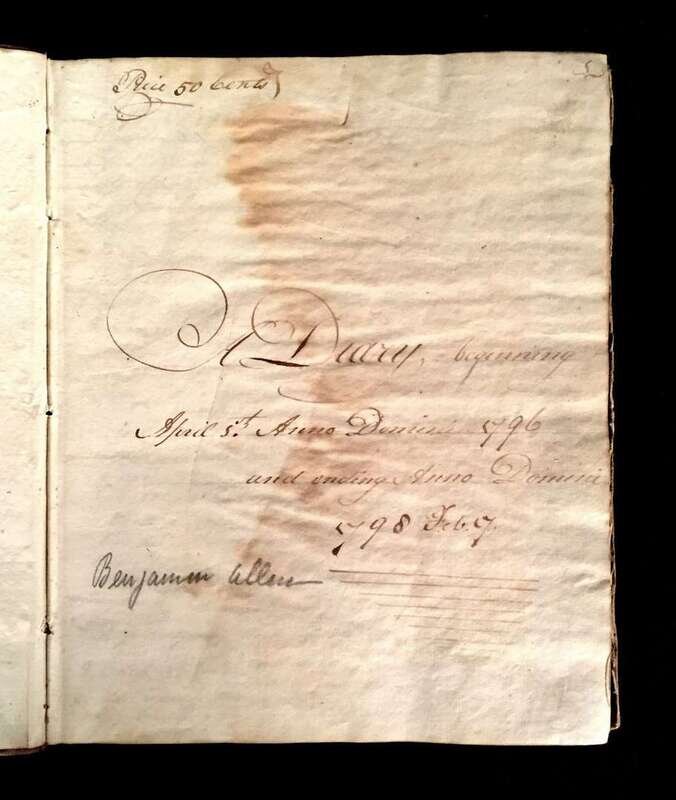 Price 50 Cents
A Diary, beginning
April 5.th Anno Domini 1796
and ending Anno Domini
1798 Feb. 7.
Benjamin Allen